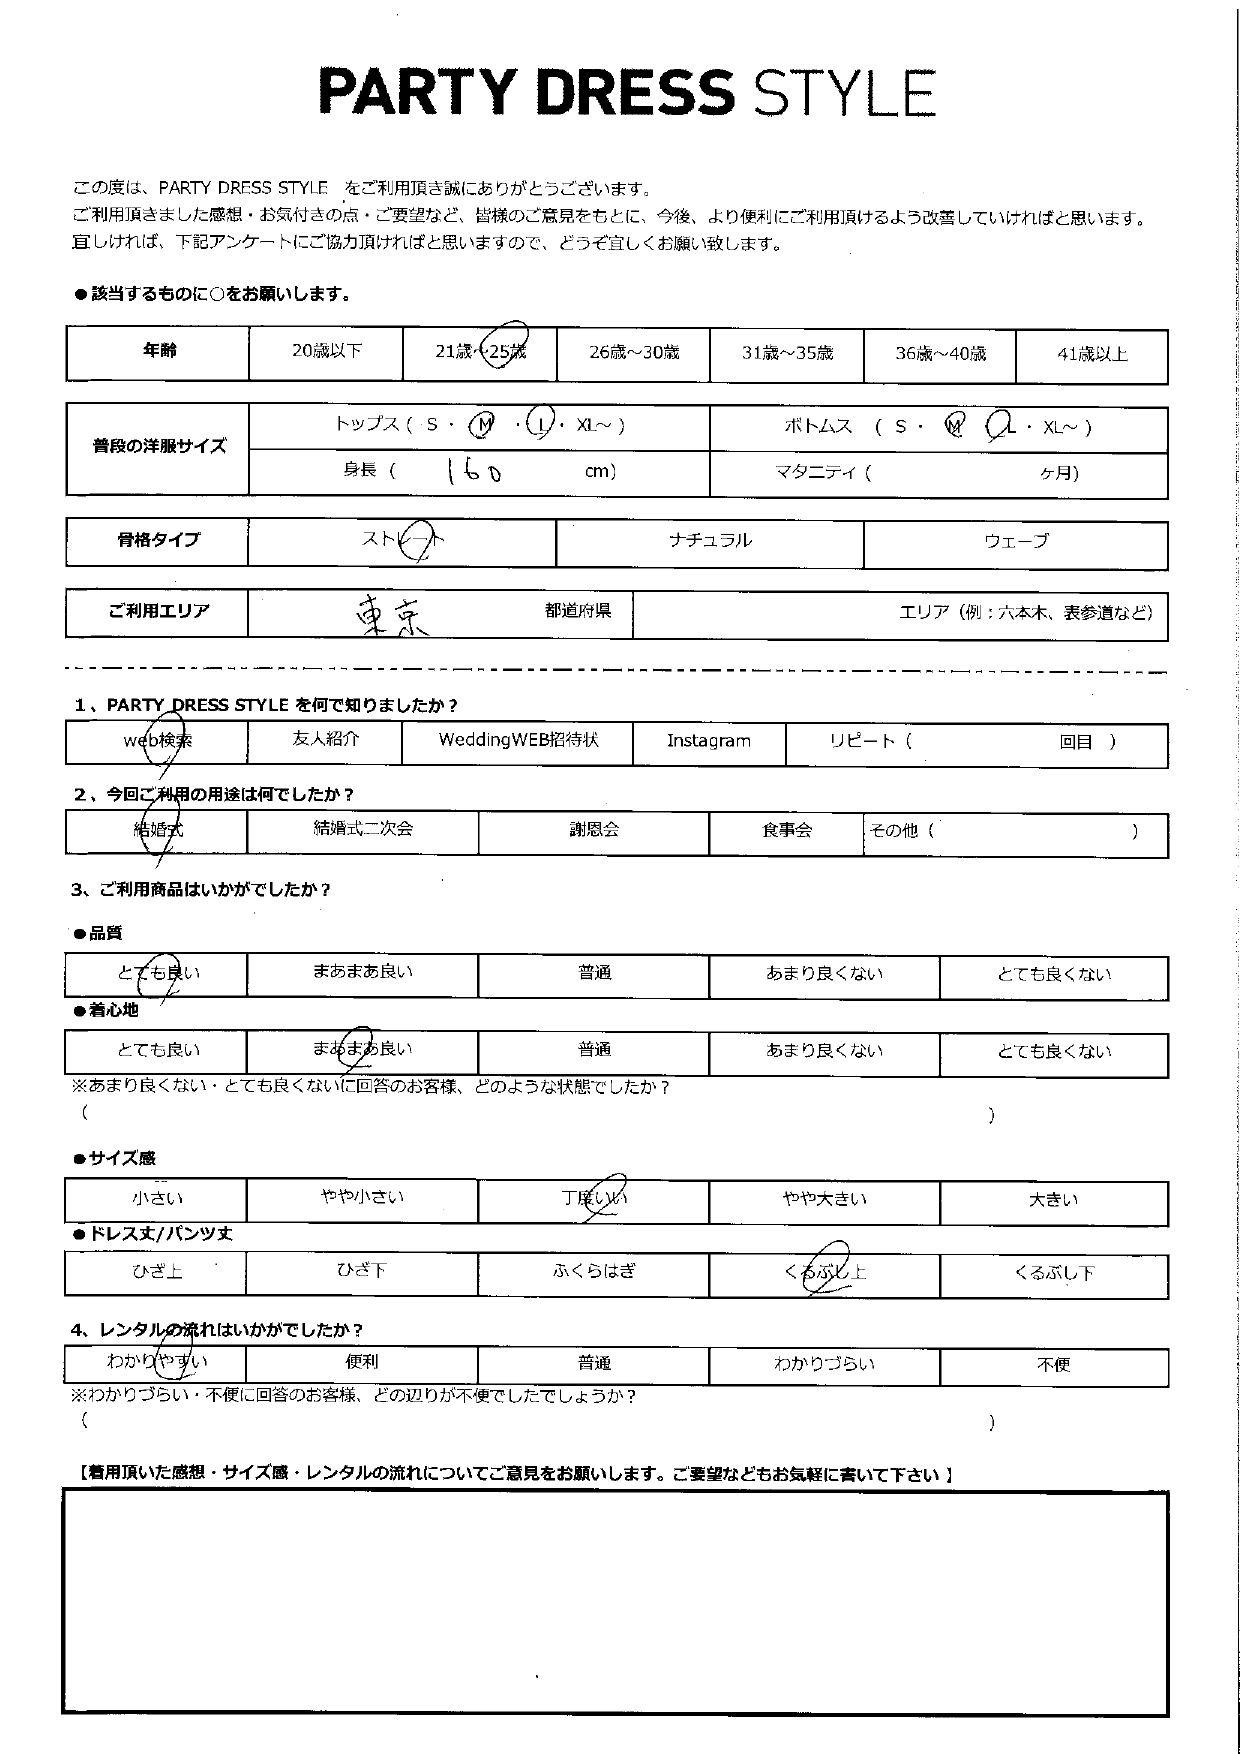 PARTY DRESS STYLE
この度は、PARTY DRESS STYLE をご利用頂き誠にありがとうございます。
ご利用頂きました感想・お気付きの点・ご要望など、皆様のご意見をもとに、今後、より便利にご利用頂けるよう改善していければと思います。
宜しければ、下記アンケートにご協力頂ければと思いますので、どうぞ宜しくお願い致します。
●該当するものに○をお願いします。
年齢 20歳以下 21歳~25歳 26歳～30歳 31歳～35歳 36歳～40歳 41歳以上
普段の洋服サイズ トップス ( S ・ M ・ L ・ XL～ ) ボトムス ( S ・ M L ・ XL～ )
身長 ( 160 cm) マタニティ ( ヶ月)
骨格タイプ ストレート ナチュラル ウェーブ
ご利用エリア 東京 都道府県 エリア（例：六本木、表参道など）
1、PARTY DRESS STYLE を何で知りましたか？
web検索 友人紹介 WeddingWEB招待状 Instagram リピート（ 回目 ）
2、今回ご利用の用途は何でしたか？
結婚式 結婚式二次会 謝恩会 食事会 その他（ ）
3、ご利用商品はいかがでしたか？
●品質
とても良い まあまあ良い 普通 あまり良くない とても良くない
●着心地
とても良い まあまあ良い 普通 あまり良くない とても良くない
※あまり良くない・とても良くないに回答のお客様、どのような状態でしたか？
（ ）
●サイズ感
小さい やや小さい 丁度いい やや大きい 大きい
●ドレス丈/パンツ丈
ひざ上 ひざ下 ふくらはぎ くるぶし上 くるぶし下
4、レンタルの流れはいかがでしたか？
わかりやすい 便利 普通 わかりづらい 不便
※わかりづらい・不便に回答のお客様、どの辺りが不便でしたでしょうか？
（ ）
【着用頂いた感想・サイズ感・レンタルの流れについてご意見をお願いします。ご要望などもお気軽に書いて下さい 】